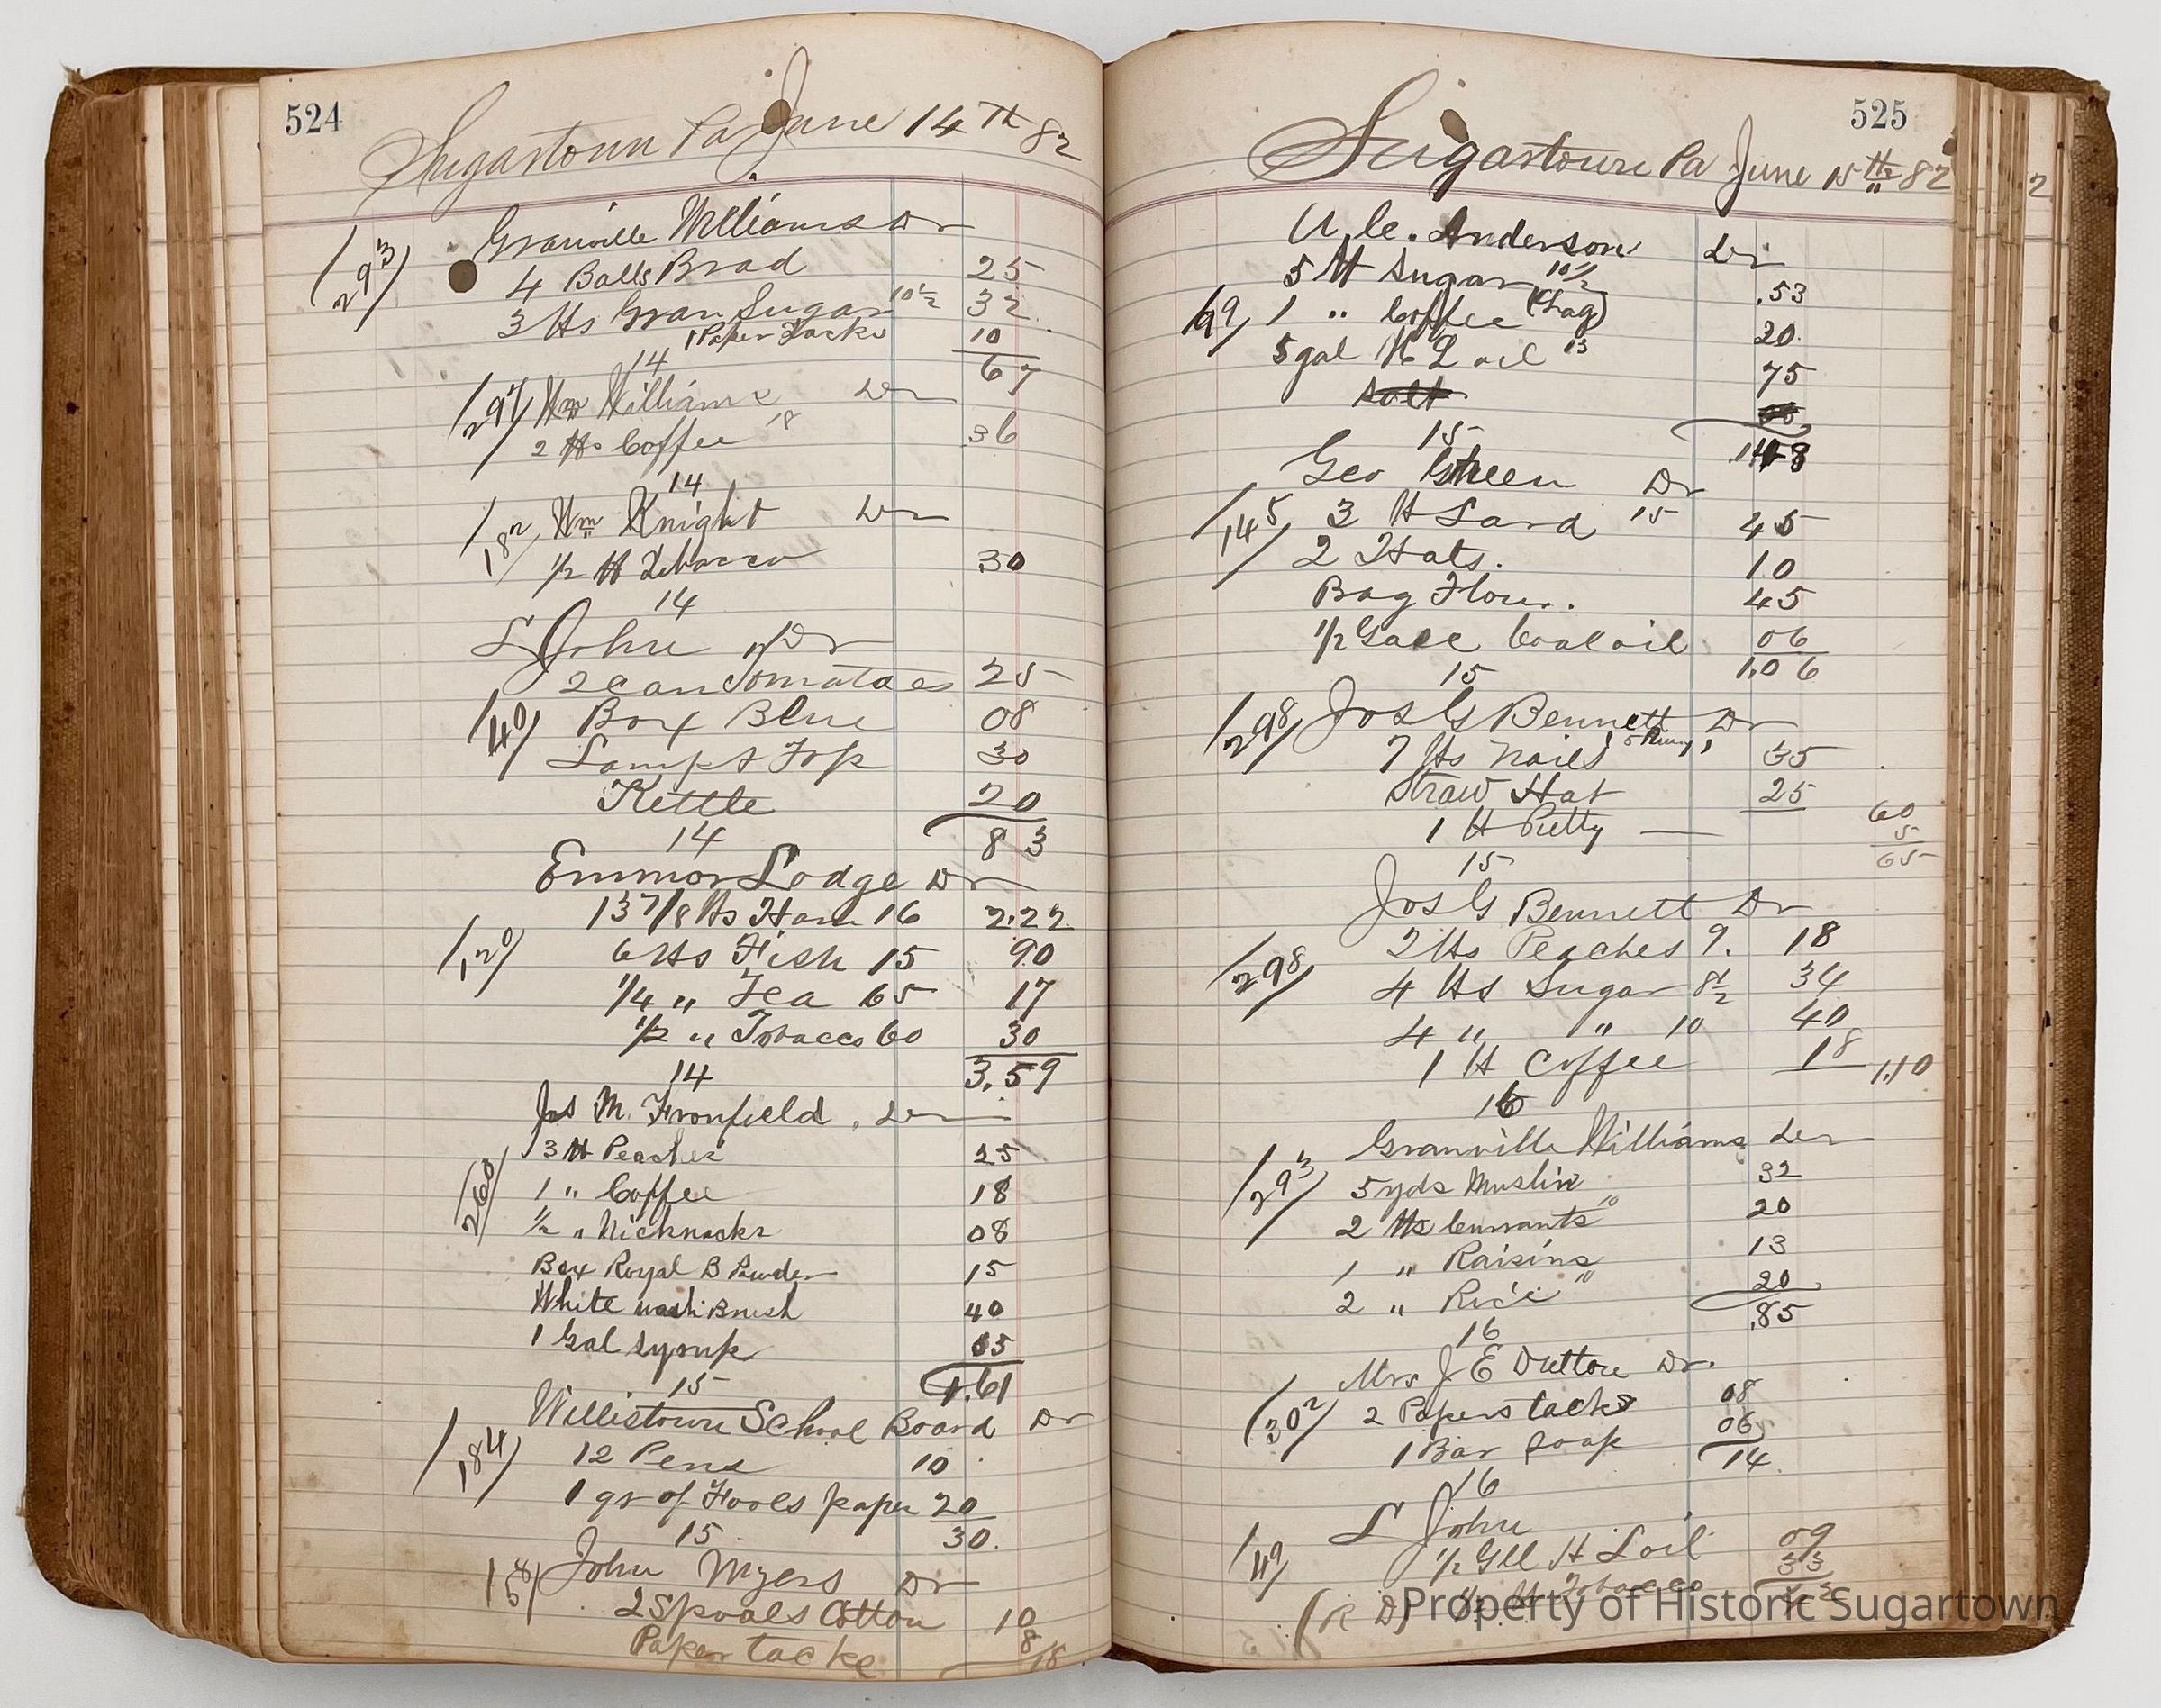 524
Sugartown Pa June 14th 82
293
Granville Williams Dr
4 Balls Brad 25
3 lbs Gran Sugar 10½ 32
1 Paper Tacks 10
67
14
297 Wm Williams Dr
2 lbs Coffee 18 36
14
182 Wm Knight Dr
½ lb Tobacco 30
14
L John Dr
2 can Tomatoes 25
49 Box Blue 08
Lamp & Top 30
Kettle 20
83
14
Emmor Lodge Dr
13 7/8 lbs Ham 16 2.22
120 6 lbs Fish 15 90
1/4 " Tea 65 17
1/2 " Tobacco 60 30
3.59
14
Jos M. Fronfield, Dr
260
3 lb Peaches 25
1 " Coffee 18
½ " Nicknacks 08
Box Royal B Powder 15
White wash Brush 40
1 Gal Syrup 65
1.61
15
Willistown School Board Dr
184
12 Pens 10
1 qr of Fools paper 20
30
15
158 John Myers Dr
2 Spools Cotton 10
Paper tacks 8
18
525
Sugartown Pa June 15th 82
Anderson Dr
5 lb Sugar 10½ .53
69 1 " Coffee (Lag) 20
5 gal H L oil 15 75
Salt
148
15
Geo Green Dr
145 3 lb Lard 15 45
2 Hats. 10
Bag Flour. 45
1/2 Gall Coal oil 06
1.06
15
298 Jos G Bennett Dr
7 lbs Nails 5 Penny 35
Straw Hat 25 60
1 lb Putty — 5
65
15
Jos G Bennett Dr
298
2 lbs Peaches 9. 18
4 lbs Sugar 8½ 34
4 " " 10 40
1 lb Coffee 18 1.10
16
Granville Williams Dr
293
5 yds Muslin 32
2 lbs Currants 10 20
1 " Raisins 13
2 " Rice 10 20
.85
16
Mrs J E Dutton Dr.
302 2 Papers tacks 08
1 Bar Soap 06
14
16
L John
49 ½ Gll H L oil 09
½ lb Tobacco 33
(R D)
Property of Historic Sugartown